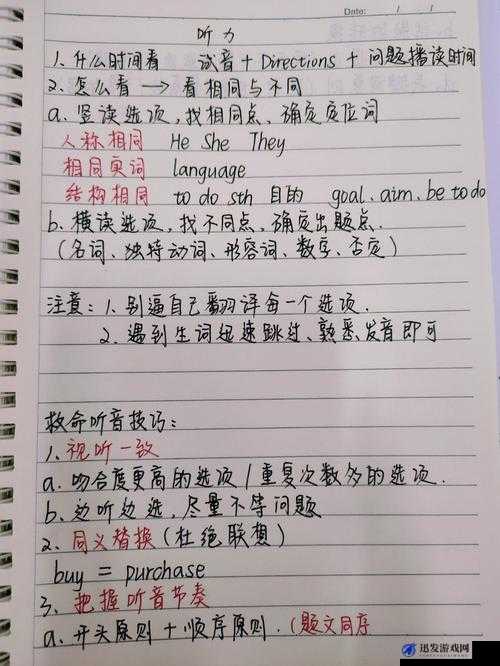 Date: / /
听力
1. 什么时间看 试音+Directions+问题播读时间
2. 怎么看 → 看相同与不同
a. 竖读选项,找相同点、确定定位词
人称相同 He She They
相同实词 language
结构相同 to do sth 目的 goal、aim、be to do
b. 横读选项,找不同点,确定出题点.
(名词、独特动词、形容词、数字、否定)
注意:1. 别逼自己翻译每一个选项.
2. 遇到生词迅速跳过、熟悉发音即可
救命听音技巧:
1. 视听一致
a. 吻合度更高的选项/重复次数多的选项.
b. 边听边选,尽量不等问题
2. 同义替换(杜绝联想)
buy = purchase
3. 把握听音节奏
a. 开头原则+顺序原则.(题文同序
迅发游戏网